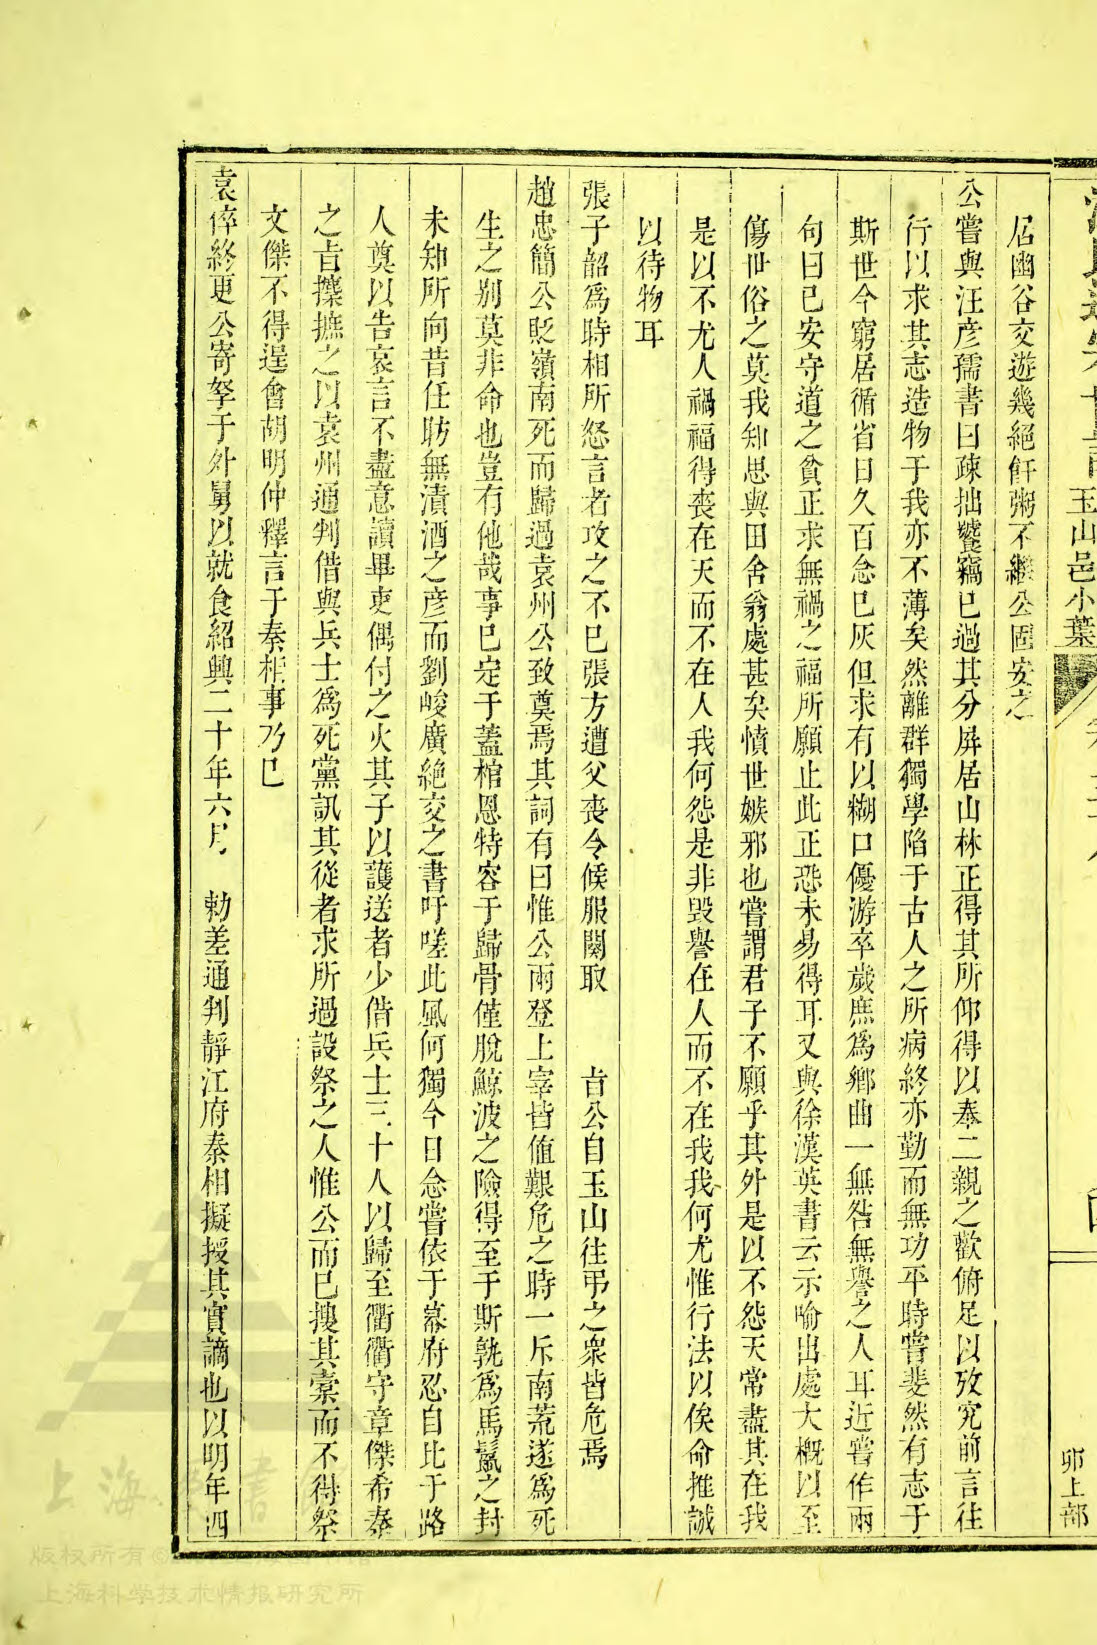 玉山邑小葉
卯上部
居幽谷交遊幾絕飦粥不繼公固安之
公嘗與汪彦孺書曰疎拙饕竊已過其分屏居山林正得其所仰得以奉二親之歡俯足以攷究前言往
行以求其志造物于我亦不薄矣然離群獨學陷于古人之所病終亦勤而無功平時嘗斐然有志于
斯世今窮居循省日久百念已灰但求有以糊口優游卒歲庶爲鄉曲一無咎無譽之人耳近嘗作兩
句曰已安守道之貧正求無禍之福所願止此正恐未易得耳又與徐漢英書云示喻出處大槪以至
傷世俗之莫我知思與田舍翁處甚矣憤世嫉邪也嘗謂君子不願乎其外是以不怨天常盡其在我
是以不尤人禍福得喪在天而不在人我何怨是非毀譽在人而不在我我何尤惟行法以俟命推誠
以待物耳
張子韶爲時相所怒言者攻之不已張方遭父喪令候服闋取 旨公自玉山往弔之衆皆危焉
趙忠簡公貶嶺南死而歸過袁州公致奠焉其詞有曰惟公兩登上宰皆値艱危之時一斥南荒遂爲死
生之别莫非命也豈有他哉事已定于蓋棺恩特容于歸骨僅脫鯨波之險得至于斯孰爲馬鬣之封
未知所向昔任昉無漬酒之彦而劉峻廣絶交之書吁嗟此風何獨今日念嘗依于幕府忍自比于路
人奠以告哀言不盡意讀畢吏偶付之火其子以護送者少借兵士三十人以歸至衢衢守章傑希秦
之旨攈摭之以袁州通判借與兵士爲死黨訊其從者求所過設祭之人惟公而已搜其橐而不得祭
文傑不得逞會胡明仲釋言于秦相事乃已
袁倅終更公寄孥于外舅以就食紹興二十年六月 勅差通判靜江府秦相擬授其實謫也以明年四
上海
版权所有©
上海科学技术情报研究所